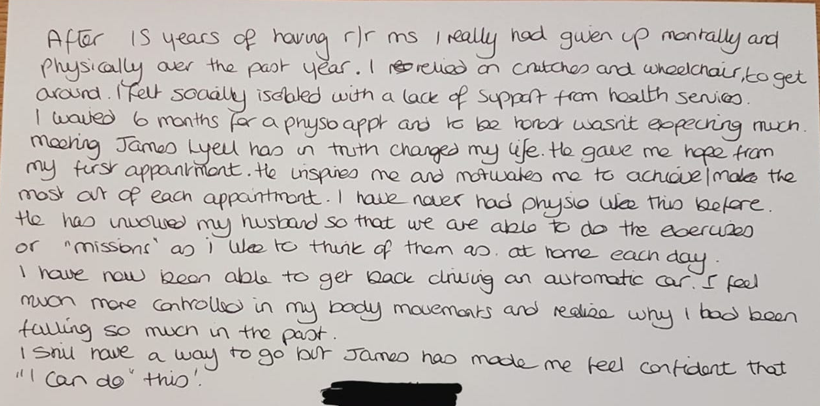 After 15 years of having r/r ms I really had given up mentally and
physically over the past year. I relied on crutches and wheelchair, to get
around. I felt socially isolated with a lack of support from health services.
I waited 6 months for a physo appt and to be honest wasn't expecting much.
Meeting James Lyell has in truth changed my life. He gave me hope from
my first appointment. He inspires me and motivates me to achieve/make the
most out of each appointment. I have never had physio like this before.
He has involved my husband so that we are able to do the exercises
or "missions' as i like to think of them as. at home each day.
I have now been able to get back driving an automatic car. I feel
much more controlled in my body movements and realise why I had been
falling so much in the past.
I still have a way to go but James has made me feel confident that
"I can do" this'.